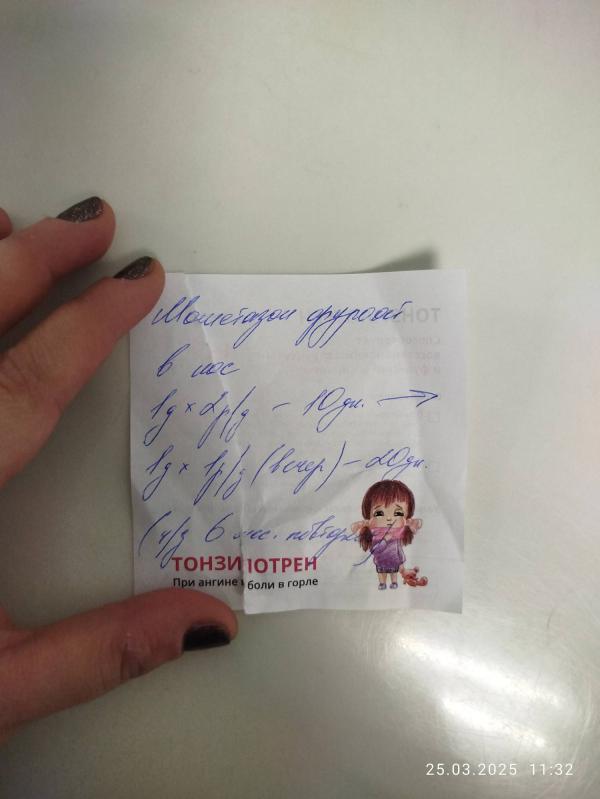 Мометазон фуроат
в нос
1д × 2р/д – 10дн. →
1д × 1р/д (вечер) – 20дн.
(ч/з 6 мес. повторить)
ТОНЗИЛОТРЕН
При ангине и боли в горле
25.03.2025 11:32